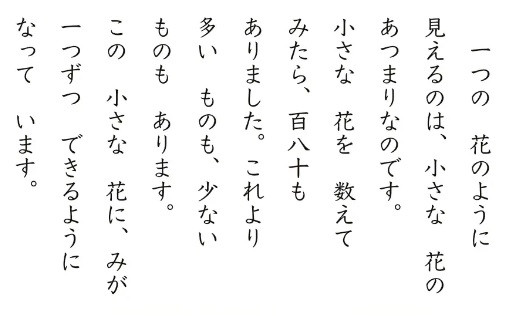 一つの　花のように
見えるのは、小さな　花の
あつまりなのです。
小さな　花を　数えて
みたら、百八十も
ありました。これより
多い　ものも、少ない
ものも　あります。
この　小さな　花に、みが
一つずつ　できるように
なって　います。